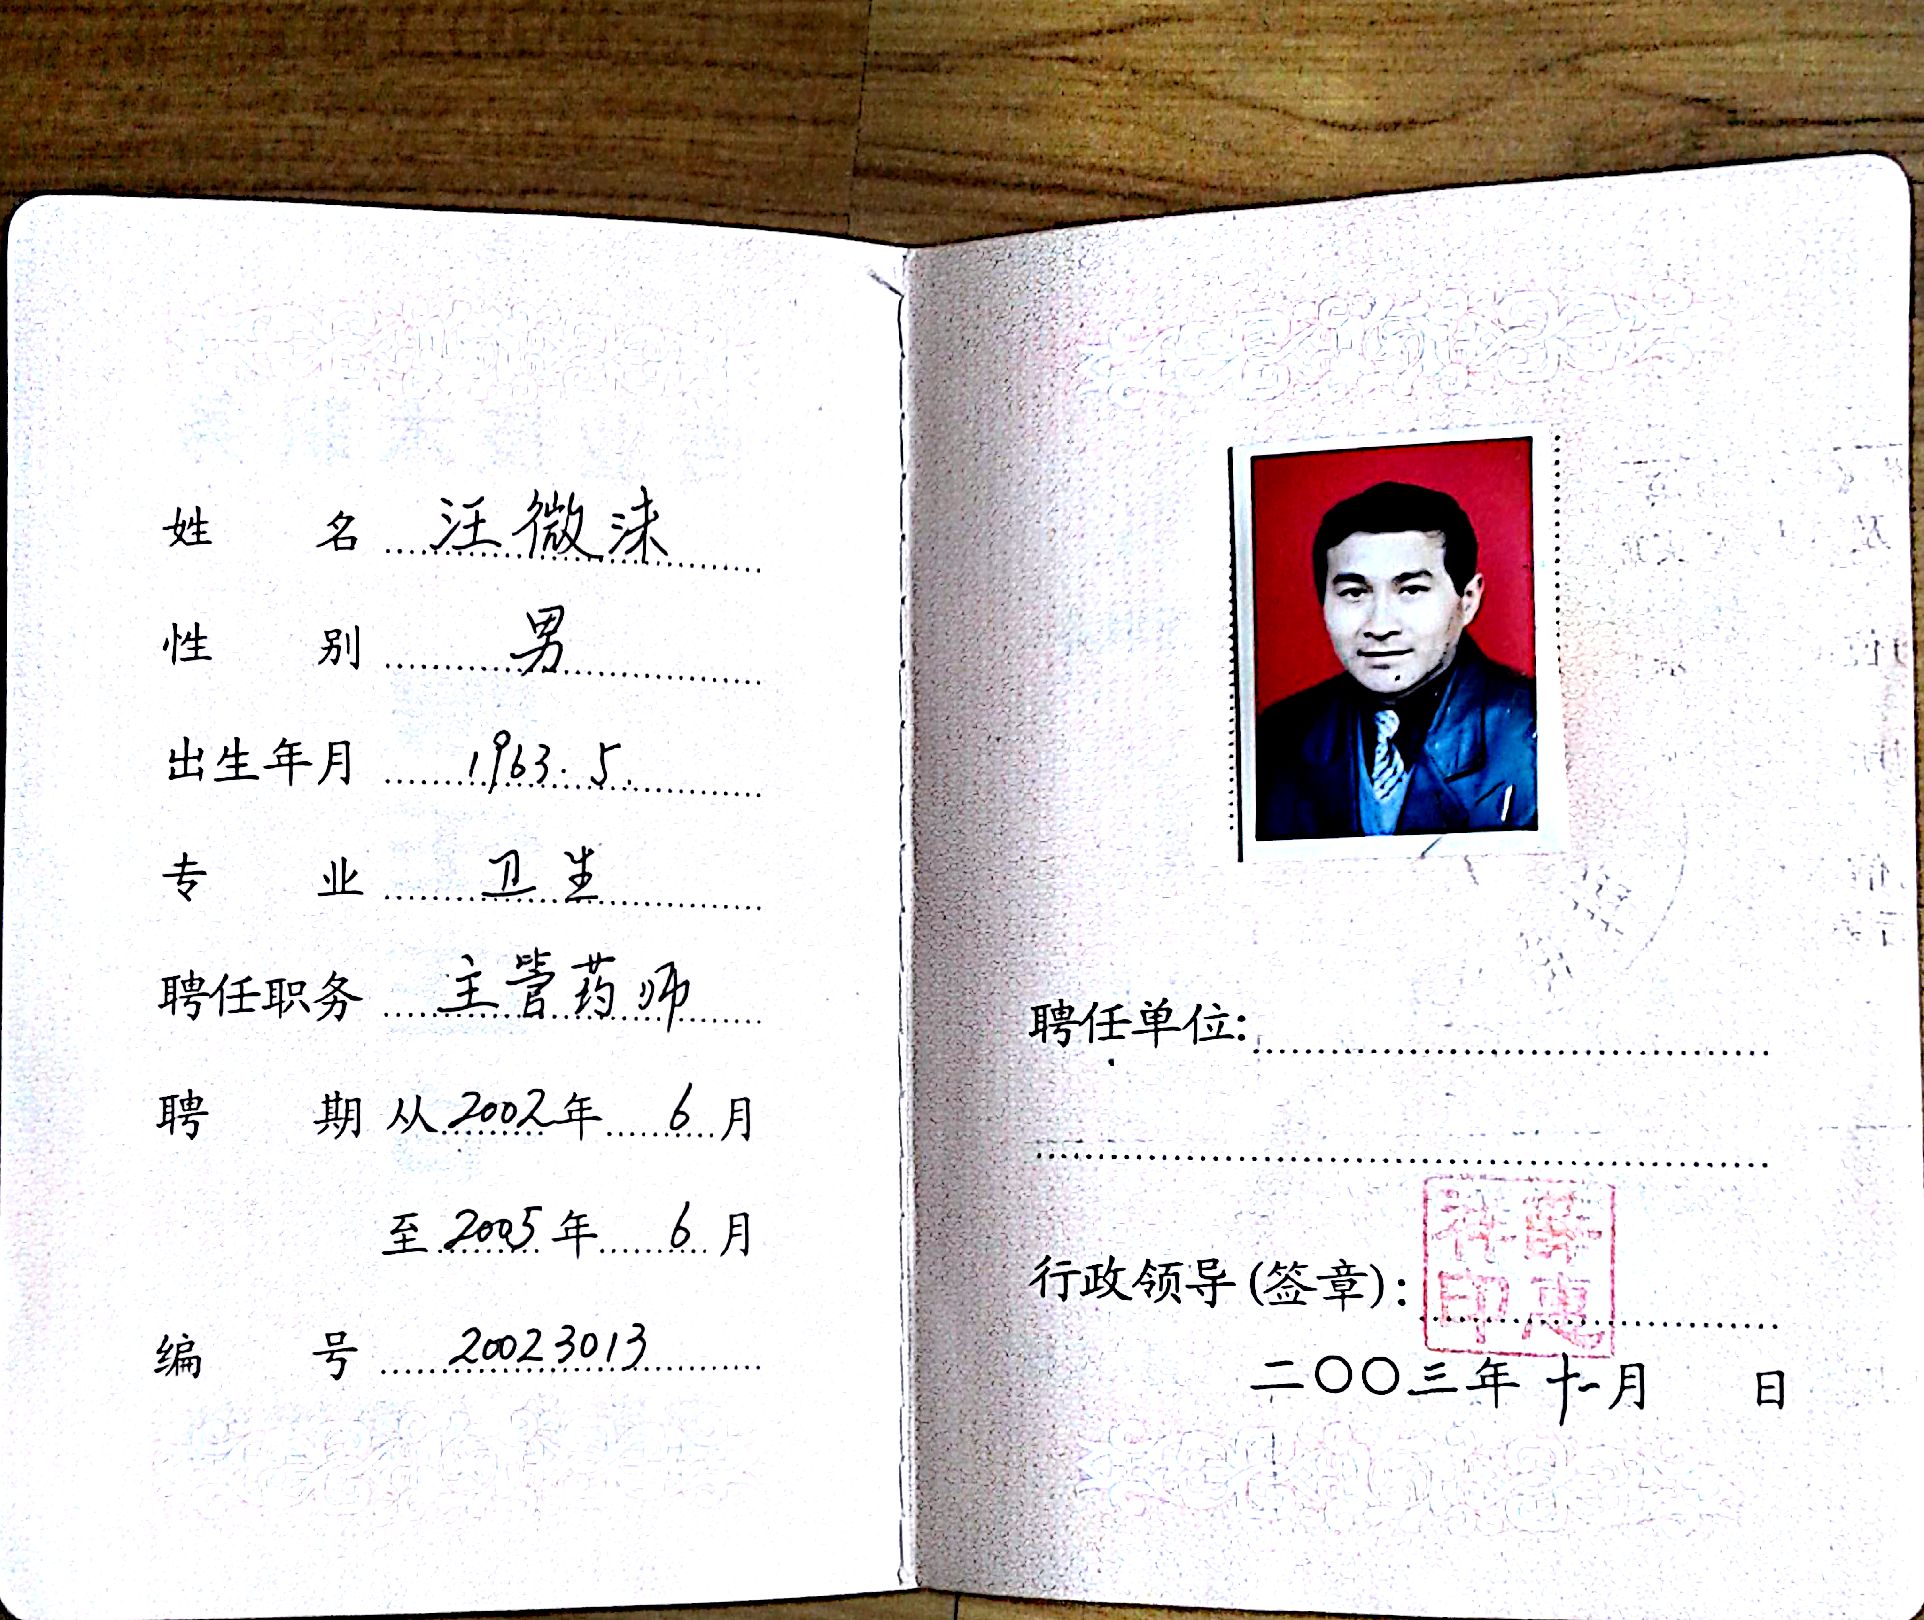 姓名 汪微涞
性别 男
出生年月 1963.5.
专业 卫生
聘任职务 主管药师
聘期 从2002年6月
至2005年6月
编号 20023013
聘任单位:
行政领导(签章):
印惠
二〇〇三年十一月 日